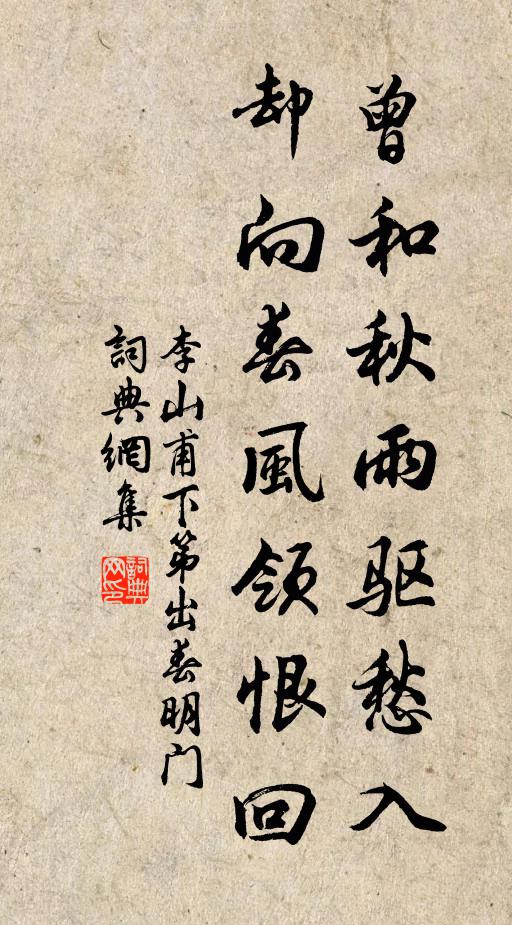 曾和秋雨驱愁入
却向春風領恨回
李山甫下第出春明门
詞典網集
詞典网印